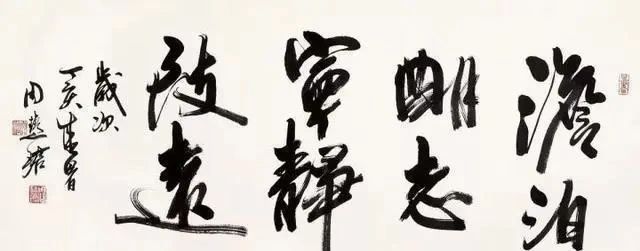 澹泊
明志
寧靜
致遠
歲次
丁亥
周慧珺